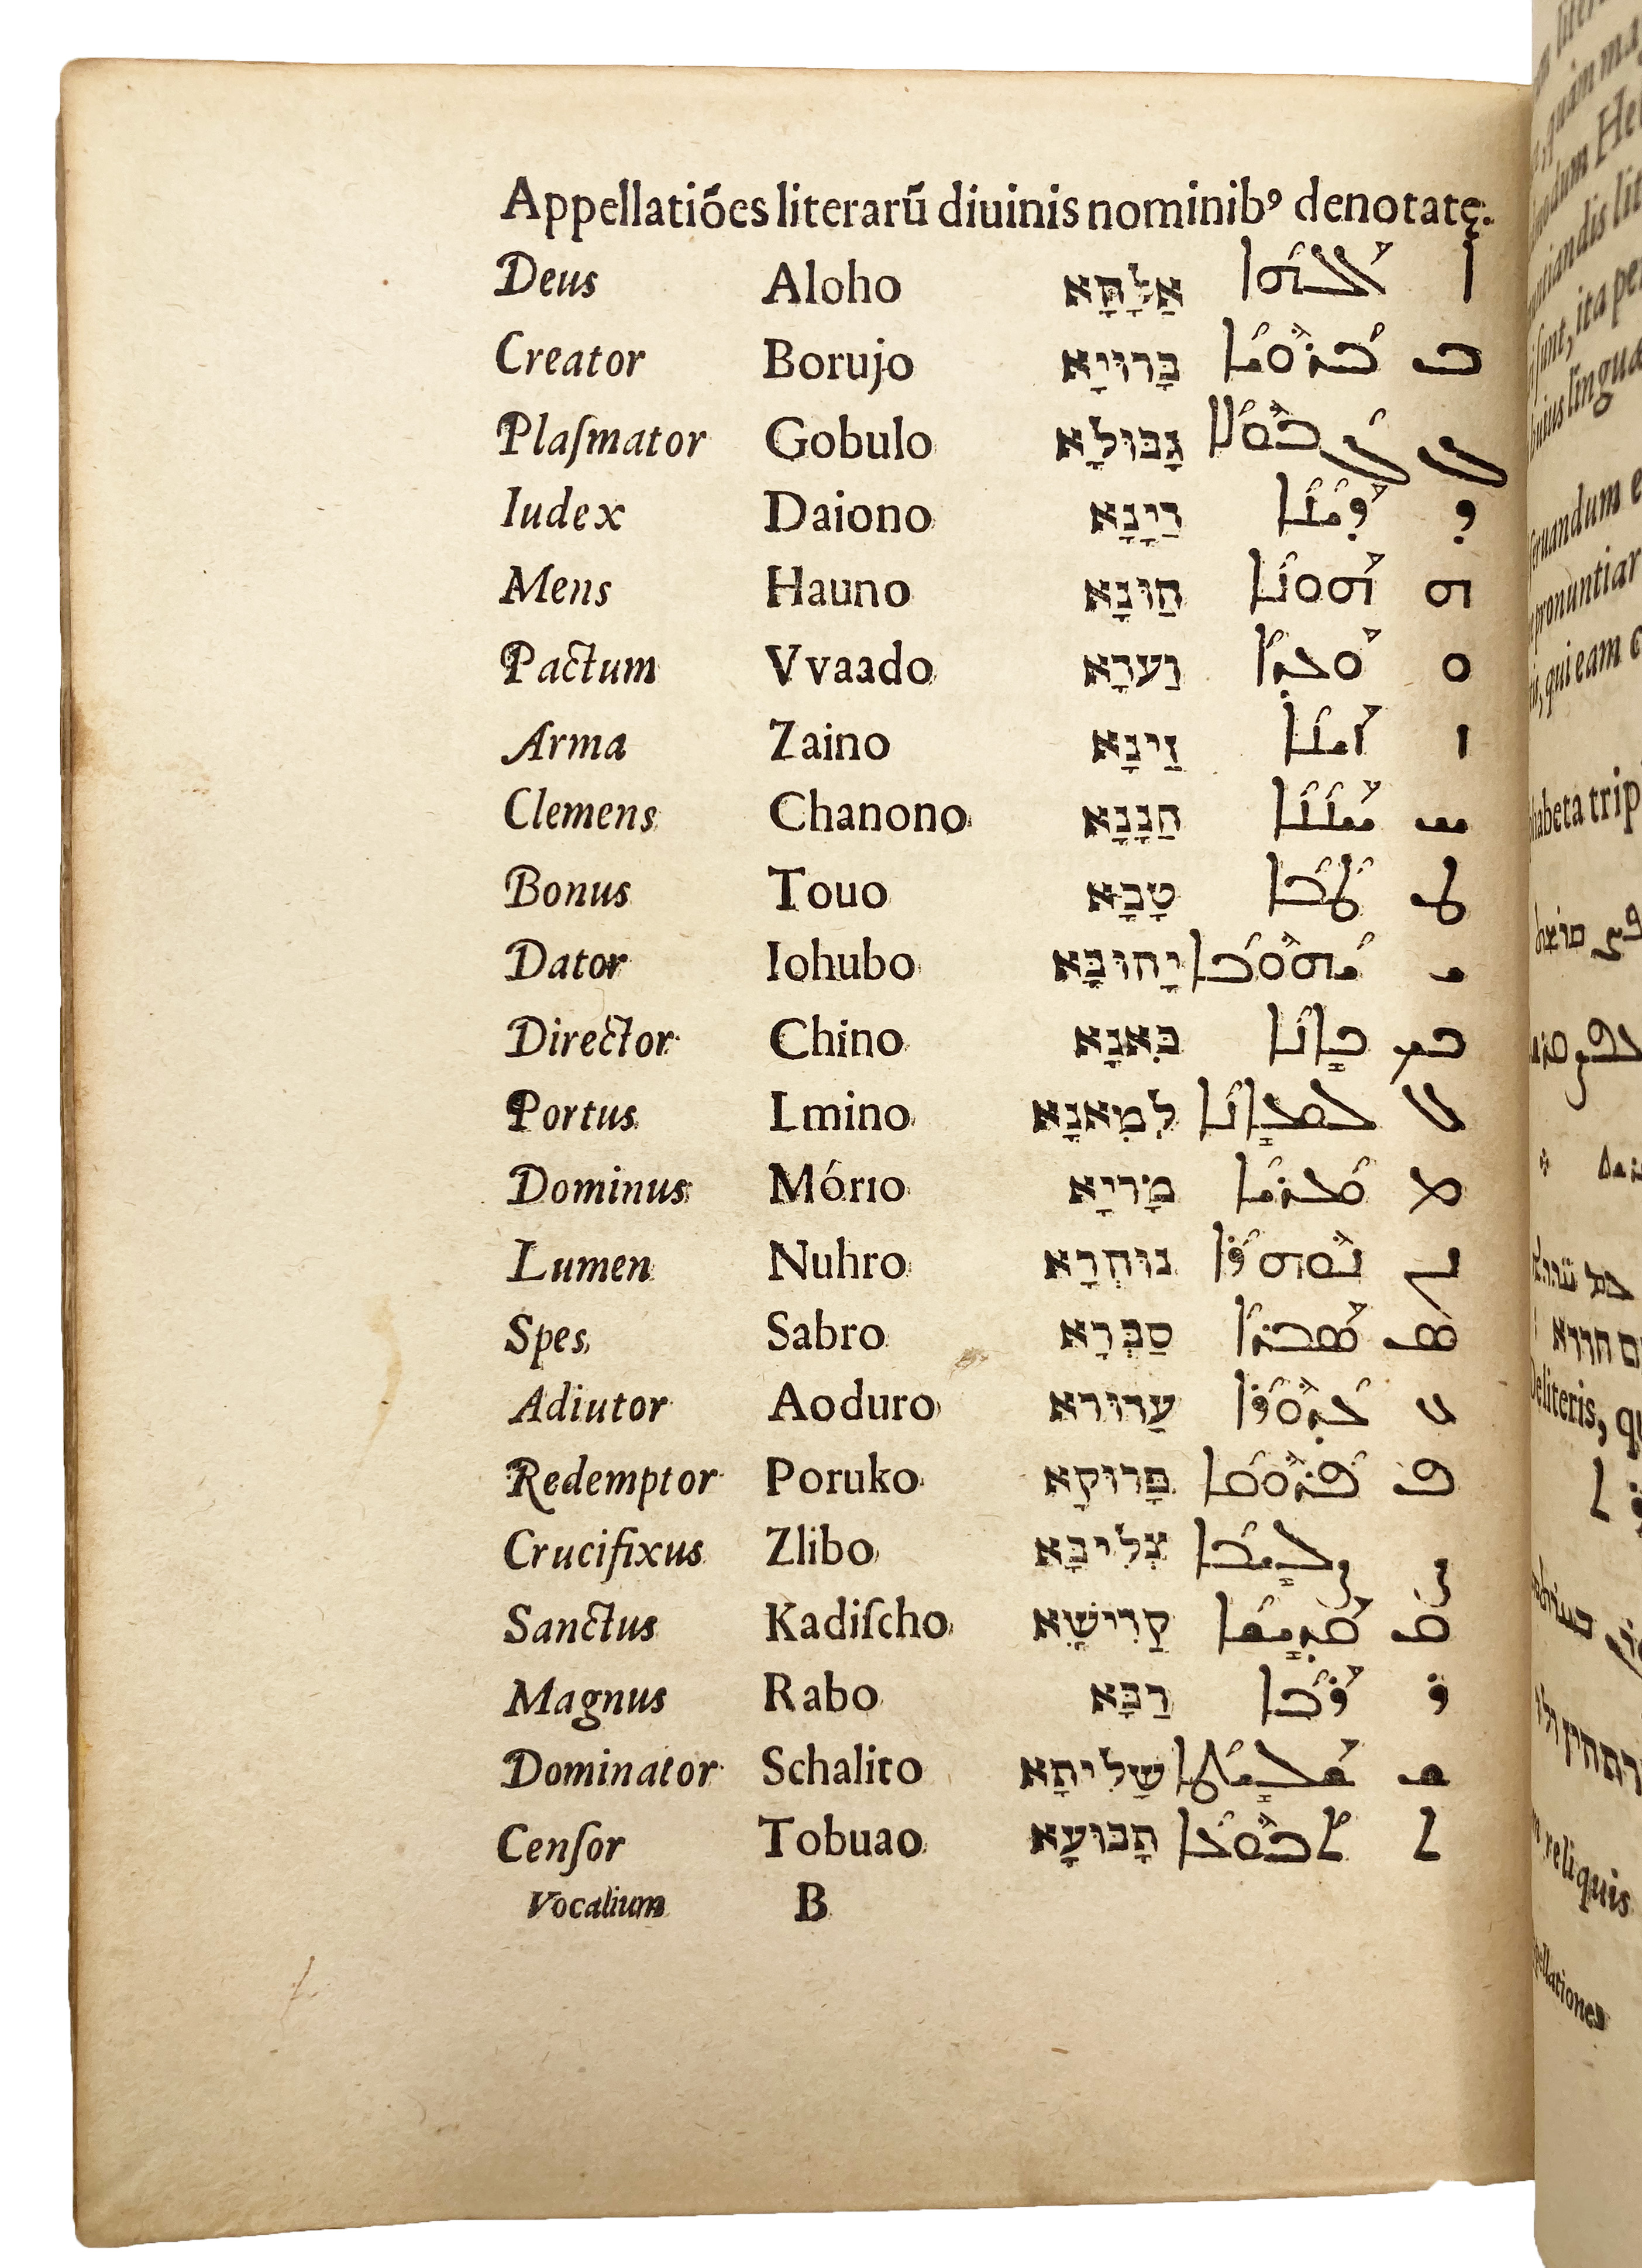 Appellatiões literarũ diuinis nominibꝰ denotatę.
Deus Aloho אַלָּהָא ܐܰܠܳܗܳܐ ܐ
Creator Borujo בָּרוּיָא ܒܳܪܽܘܝܳܐ ܒ
Plaſmator Gobulo גָּבּוּלָא ܓܳܒܽܘܠܳܐ ܓ
Iudex Daiono דַיָנָא ܕܰܝܳܢܳܐ ܕ
Mens Hauno הַוּנָא ܗܰܘܢܳܐ ܗ
Pactum Vvaado וַעדָא ܘܰܥܕܳܐ ܘ
Arma Zaino זַינָא ܙܰܝܢܳܐ ܙ
Clemens Chanono חַנָנָא ܚܰܢܳܢܳܐ ܚ
Bonus Touo טָבָא ܛܳܒܳܐ ܛ
Dator Iohubo יָהוּבָּא ܝܳܗܽܘܒܳܐ ܝ
Director Chino כִּאנָא ܟܺܐܢܳܐ ܟ
Portus Lmino לִמִאנָא ܠܡܺܐܢܳܐ ܠ
Dominus Mórıo מָריָא ܡܳܪܝܳܐ ܡ
Lumen Nuhro נוּהְרָא ܢܽܘܗܪܳܐ ܢ
Spes Sabro סַבְּרָא ܣܰܒܪܳܐ ܣ
Adiutor Aoduro עָדוּרא ܥܳܕܽܘܪܳܐ ܥ
Redemptor Poruko פָּרוּקָא ܦܳܪܽܘܩܳܐ ܦ
Crucifixus Zlibo צְלִיבָּא ܨܠܺܝܒܳܐ ܨ
Sanctus Kadiſcho קַדִישָׁא ܩܰܕܺܝܫܳܐ ܩ
Magnus Rabo רַבָּא ܪܰܒܳܐ ܪ
Dominator Schalito שָׁלִיתָא ܫܰܠܺܝܛܳܐ ܫ
Cenſor Tobuao תָבוּעָא ܬܳܒܽܘܥܳܐ ܬ
Vocalium B